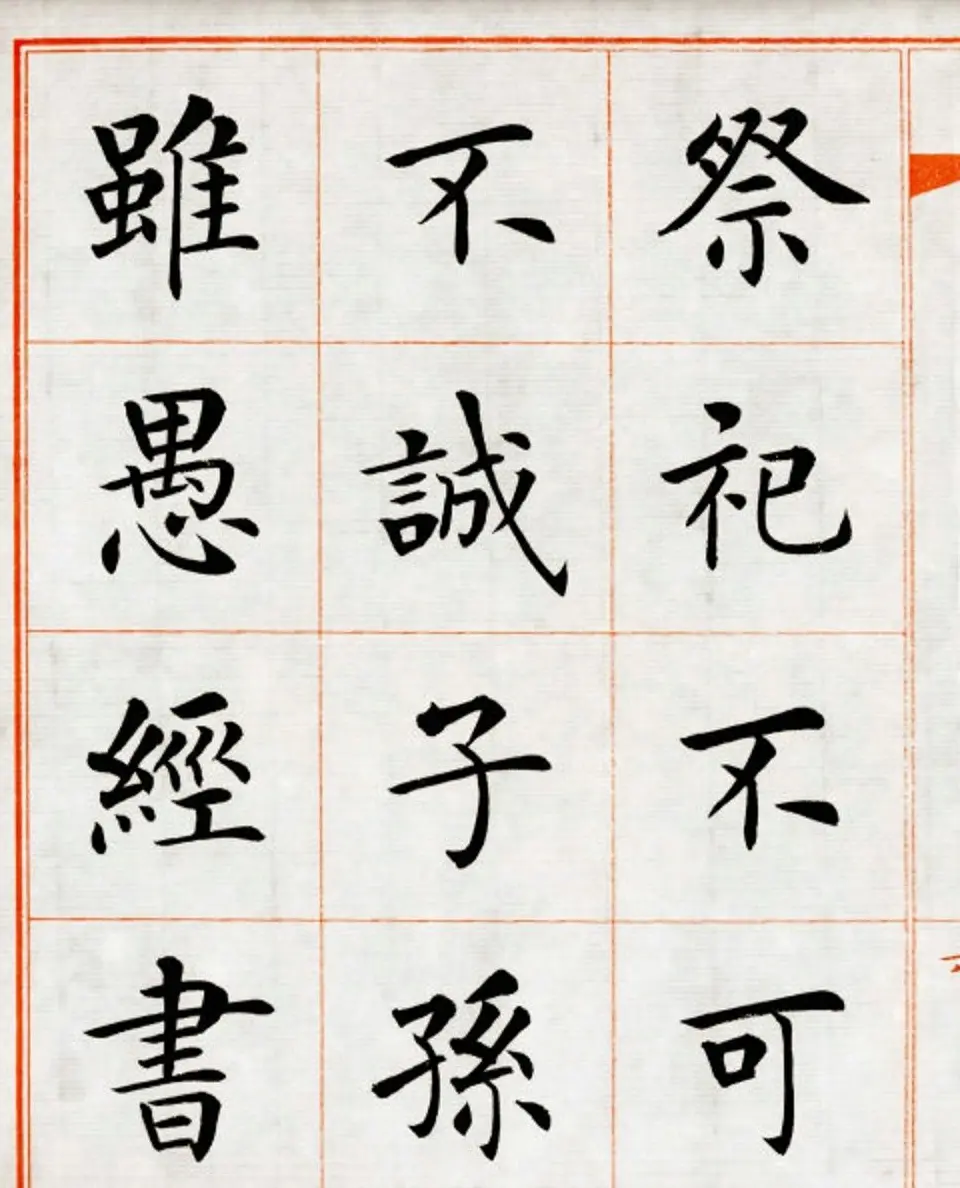 祭祀不可
不誠子孫
雖愚經書